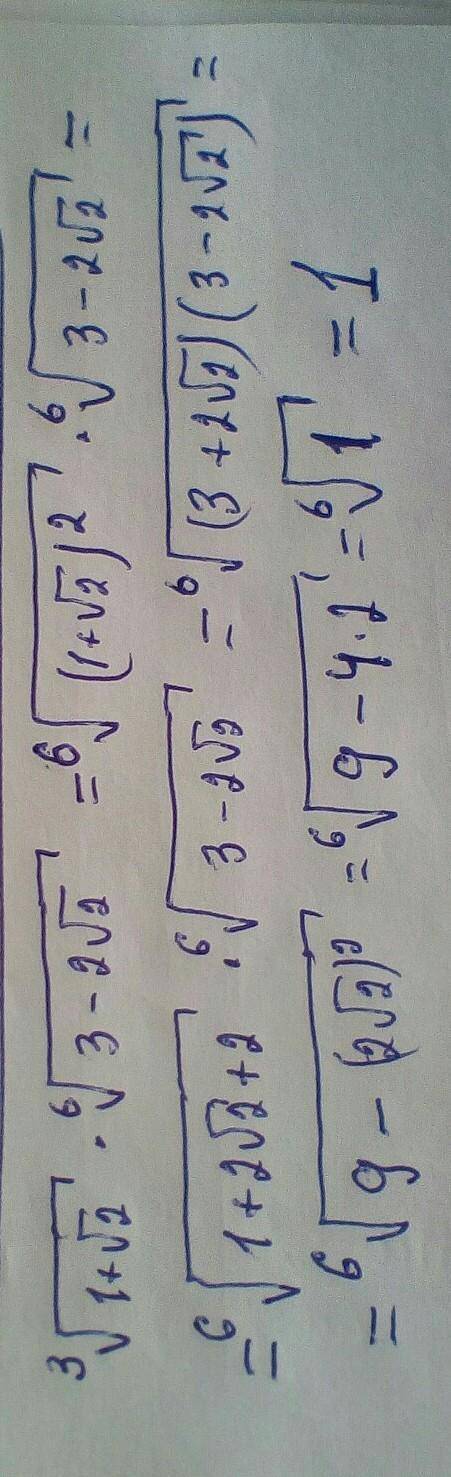 ∛(1+√2) · ⁶√(3-2√2) = ⁶√((1+√2)²) · ⁶√(3-2√2) =
= ⁶√(1+2√2+2) · ⁶√(3-2√2) = ⁶√((3+2√2)(3-2√2)) =
= ⁶√(9-(2√2)²) = ⁶√(9-4·2) = ⁶√1 = 1